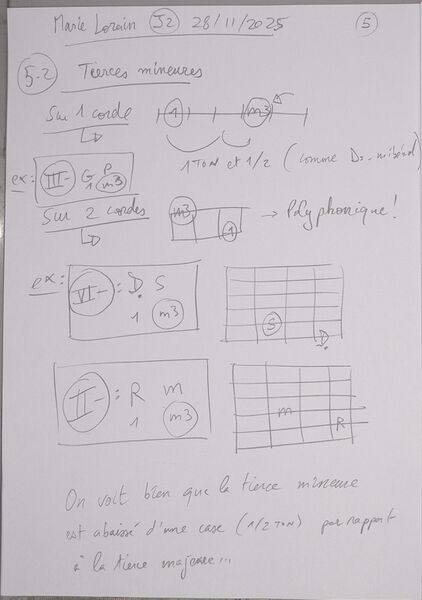 Marie Lorain J2 28/11/2025 5
5.2 Tierces mineures
Sur 1 corde 1 m3
1 TON et 1/2 (comme Do-mibémol)
ex: III- G P
1 m3
Sur 2 cordes m3 1 → Polyphonique!
ex: VI- : D. S
1 m3
S D.
II- : R m
1 m3
m R
On voit bien que la tierce mineure
est abaissé d'une case (1/2 TON) par rapport
à la tierce majeure...